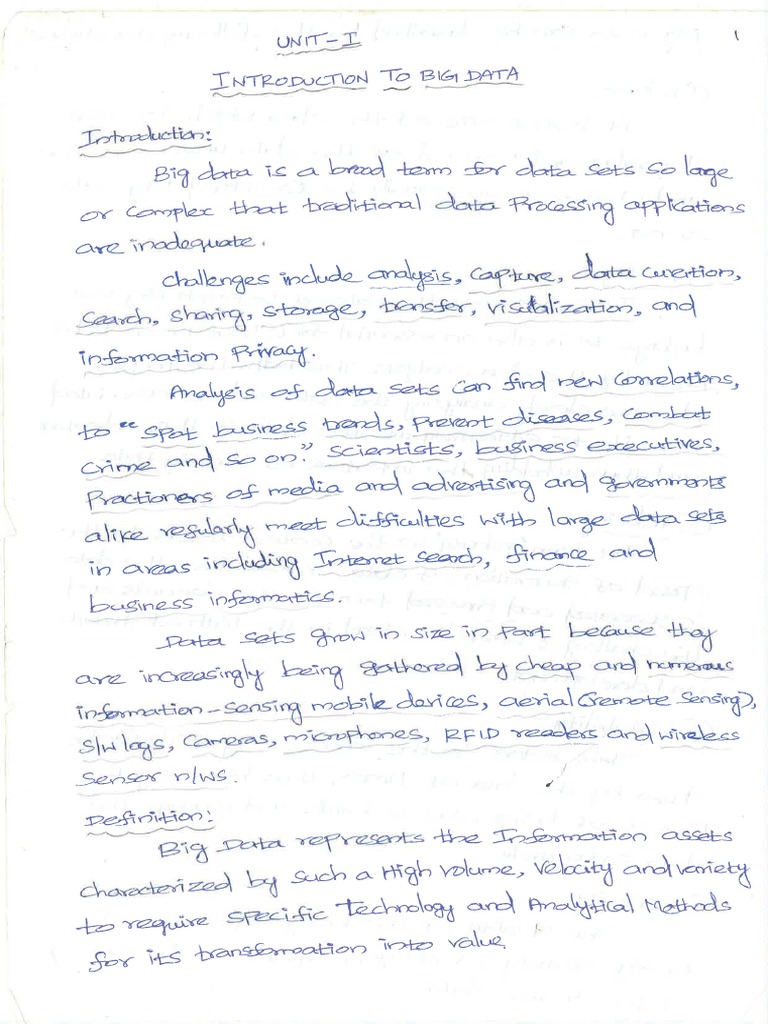 1
UNIT-I
INTRODUCTION TO BIG DATA
Introduction:
Big data is a broad term for data sets so large
or complex that traditional data Processing applications
are inadequate.
Challenges include analysis, capture, data curertion,
search, sharing, storage, transfer, visualization, and
information Privacy.
Analysis of data sets can find new correlations,
to "spot business trends, prevent diseases, combat
crime and so on." scientists, business executives,
Practioners of media and advertising and governments
alike regularly meet difficulties with large data sets
in areas including Internet search, finance and
business informatics.
Data sets grow in size in part because they
are increasingly being gathered by cheap and numerous
information-sensing mobile devices, aerial (remote sensing),
s/w logs, cameras, microphones, RFID readers and wireless
sensor n/ws.
Definition:
Big Data represents the Information assets
characterized by such a High volume, velocity and variety
to require specific Technology and Analytical Methods
for its transformation into value.